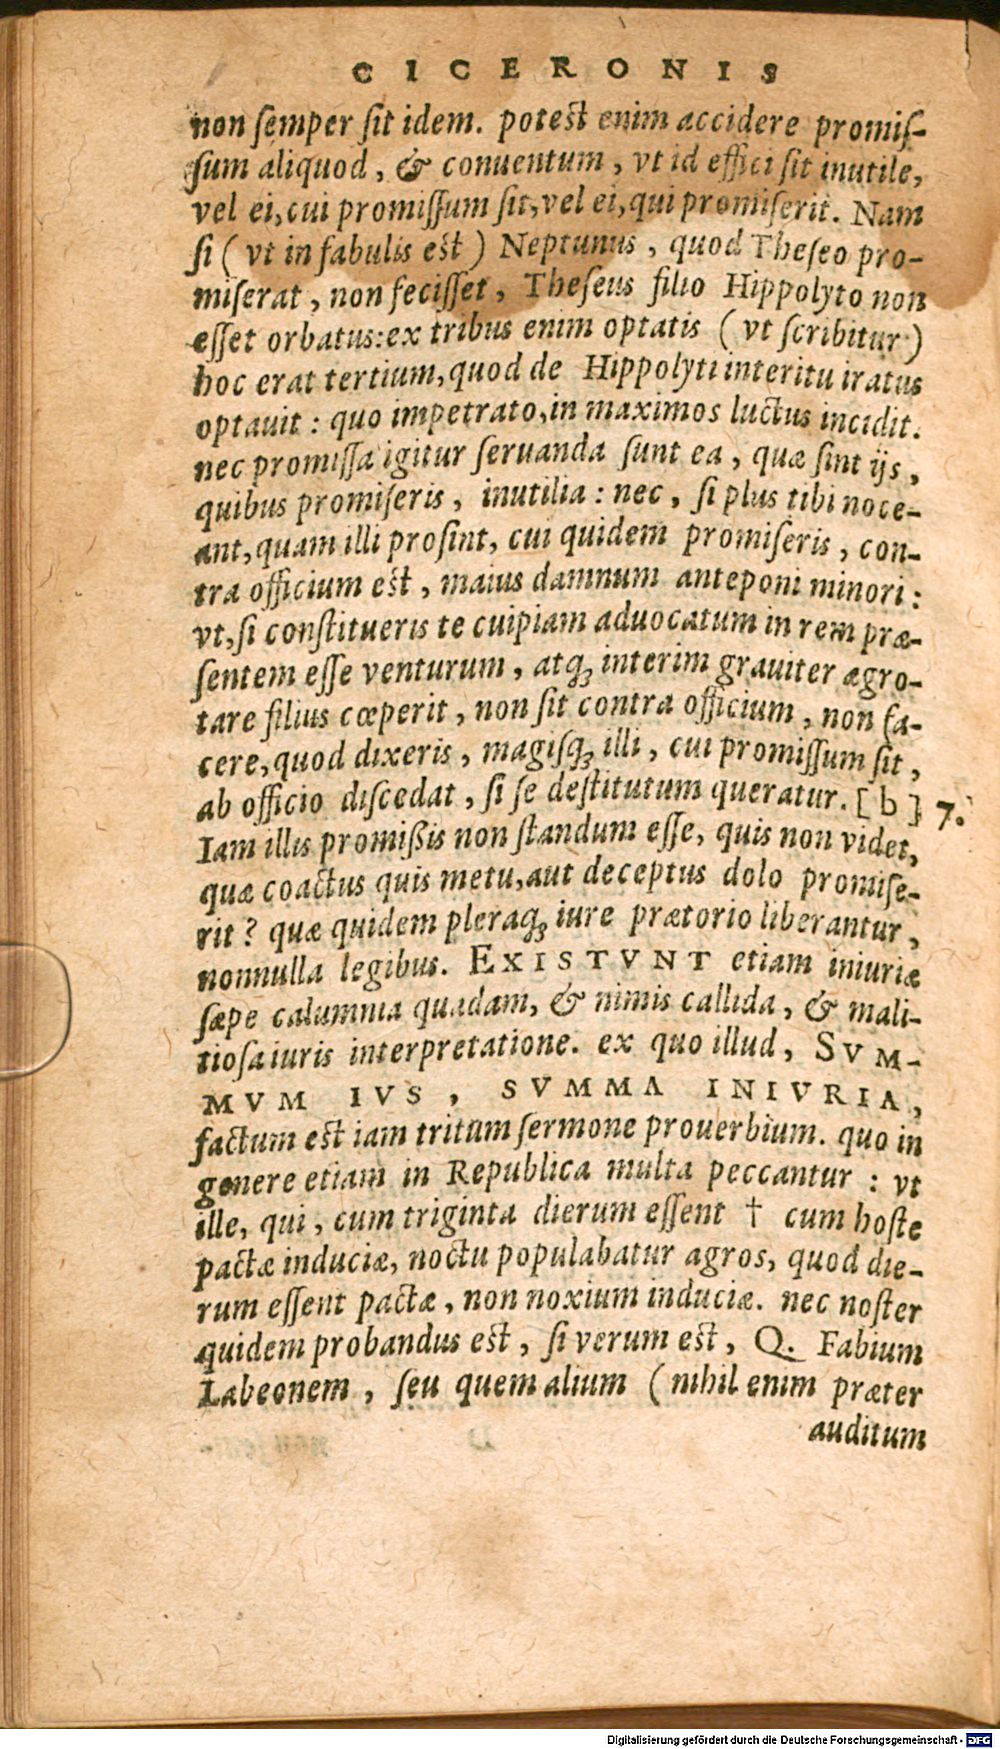 CICERONIS
non semper sit idem. potest enim accidere promis-
sum aliquod, & conuentum, vt id effici sit inutile,
vel ei, cui promissum sit, vel ei, qui promiserit. Nam
si ( vt in fabulis est ) Neptunus, quod Theseo pro-
miserat, non fecisset, Theseus filio Hippolyto non
esset orbatus: ex tribus enim optatis ( vt scribitur )
hoc erat tertium, quod de Hippolyti interitu iratus
optauit: quo impetrato, in maximos luctus incidit.
nec promissa igitur seruanda sunt ea, quæ sint ijs,
quibus promiseris, inutilia: nec, si plus tibi noce-
ant, quam illi prosint, cui quidem promiseris, con-
tra officium est, maius damnum anteponi minori:
vt, si constitueris te cuipiam aduocatum in rem præ-
sentem esse venturum, atq; interim grauiter ægro-
tare filius cœperit, non sit contra officium, non fa-
cere, quod dixeris, magisq; illi, cui promissum sit,
ab officio discedat, si se destitutum queratur. [b] 7.
Iam illis promißis non standum esse, quis non videt,
quæ coactus quis metu, aut deceptus dolo promise-
rit? quæ quidem pleraq; iure prætorio liberantur,
nonnulla legibus. EXISTVNT etiam iniuriæ
sæpe calumnia quadam, & nimis callida, & mali-
tiosa iuris interpretatione. ex quo illud, SVM-
MVM IVS, SVMMA INIVRIA,
factum est iam tritum sermone prouerbium. quo in
genere etiam in Republica multa peccantur: vt
ille, qui, cum triginta dierum essent † cum hoste
pactæ induciæ, noctu populabatur agros, quod die-
rum essent pactæ, non noxium induciæ. nec noster
quidem probandus est, si verum est, Q. Fabium
Labeonem, seu quem alium ( nihil enim præter
auditum
Digitalisierung gefördert durch die Deutsche Forschungsgemeinschaft - DFG